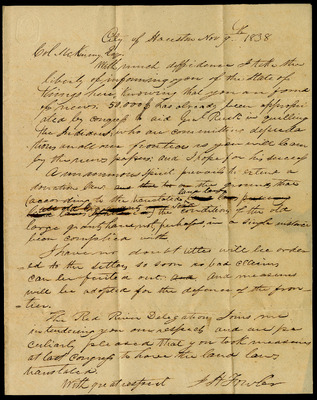 City of Houston Nov 9th 1838
Col. McKinney
With much diffidence I take the
liberty of informing you of the State of
things here, knowing that you are fond
of news. 50.000 has already been appropri
ated by congress to aid Genl Rusk in quelling
the Indians, who are committing depreda
tions on all our frontiers as you will learn
by the news papers and I hope for his success
A unanimous Spirit prevails to extend a
donation law
according to the
the conditions of the old
large grants have not perhaps in a single instance
been complied with
I have no doubt titles will be order
ed to the settlers so soon as such claims
can be pointed out and measures
will be adopted for the defence of the fron
tier.
The Red River Delegation Joins me
in tendering you our respects and are pe
culiarly pleased that you took measures
at last Congress to have the land law
translated
With great respect
Fowler